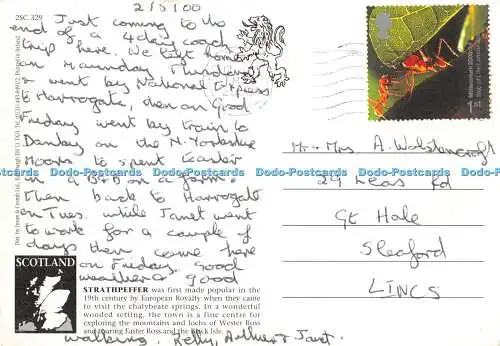 2/5/00
2SC. 329
Just coming to the
end of a 4 day coach
trip here. We left home
on Maunday Thursday
& went by National Express
to Harrogate, then on Good
Friday went by train to
Danby on the N. Yorkshire
Moors to spent Easter
in a B&B on a farm.
Then back to Harrogate
on Tues. while Janet went
to work for a couple of
days then come here
on Friday. Good
weather & good
walking. Kelly, Arthur & Janet.
Mr & Mrs A. Wolstencroft
29 Leas Rd
Gt Hale
Sleaford
LINCS
SCOTLAND
STRATHPEFFER was first made popular in the
19th century by European Royalty when they came
to visit the chalybeate springs. In a wonderful
wooded setting, the town is a fine centre for
exploring the mountains and lochs of Wester Ross
and touring Easter Ross and the Black Isle.
Postcards-Postcards Postcards-Postcards Postcards-Postcards